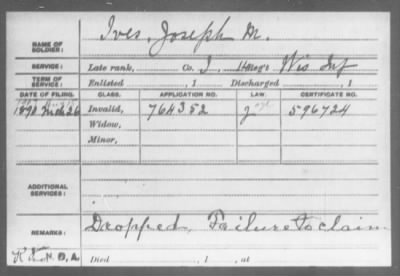 NAME OF SOLDIER: Ives, Joseph M.
SERVICE: Late rank, Co. I, Reg't Wis Inf
TERM OF SERVICE: Enlisted , 1 Discharged , 1
DATE OF FILING. CLASS. APPLICATION NO. LAW. CERTIFICATE NO.
1890 Mch 26 Invalid, 764352 596724
Widow,
Minor,
ADDITIONAL SERVICES:
REMARKS: Dropped, Failure to claim
N.O.A. Died , 1 , at